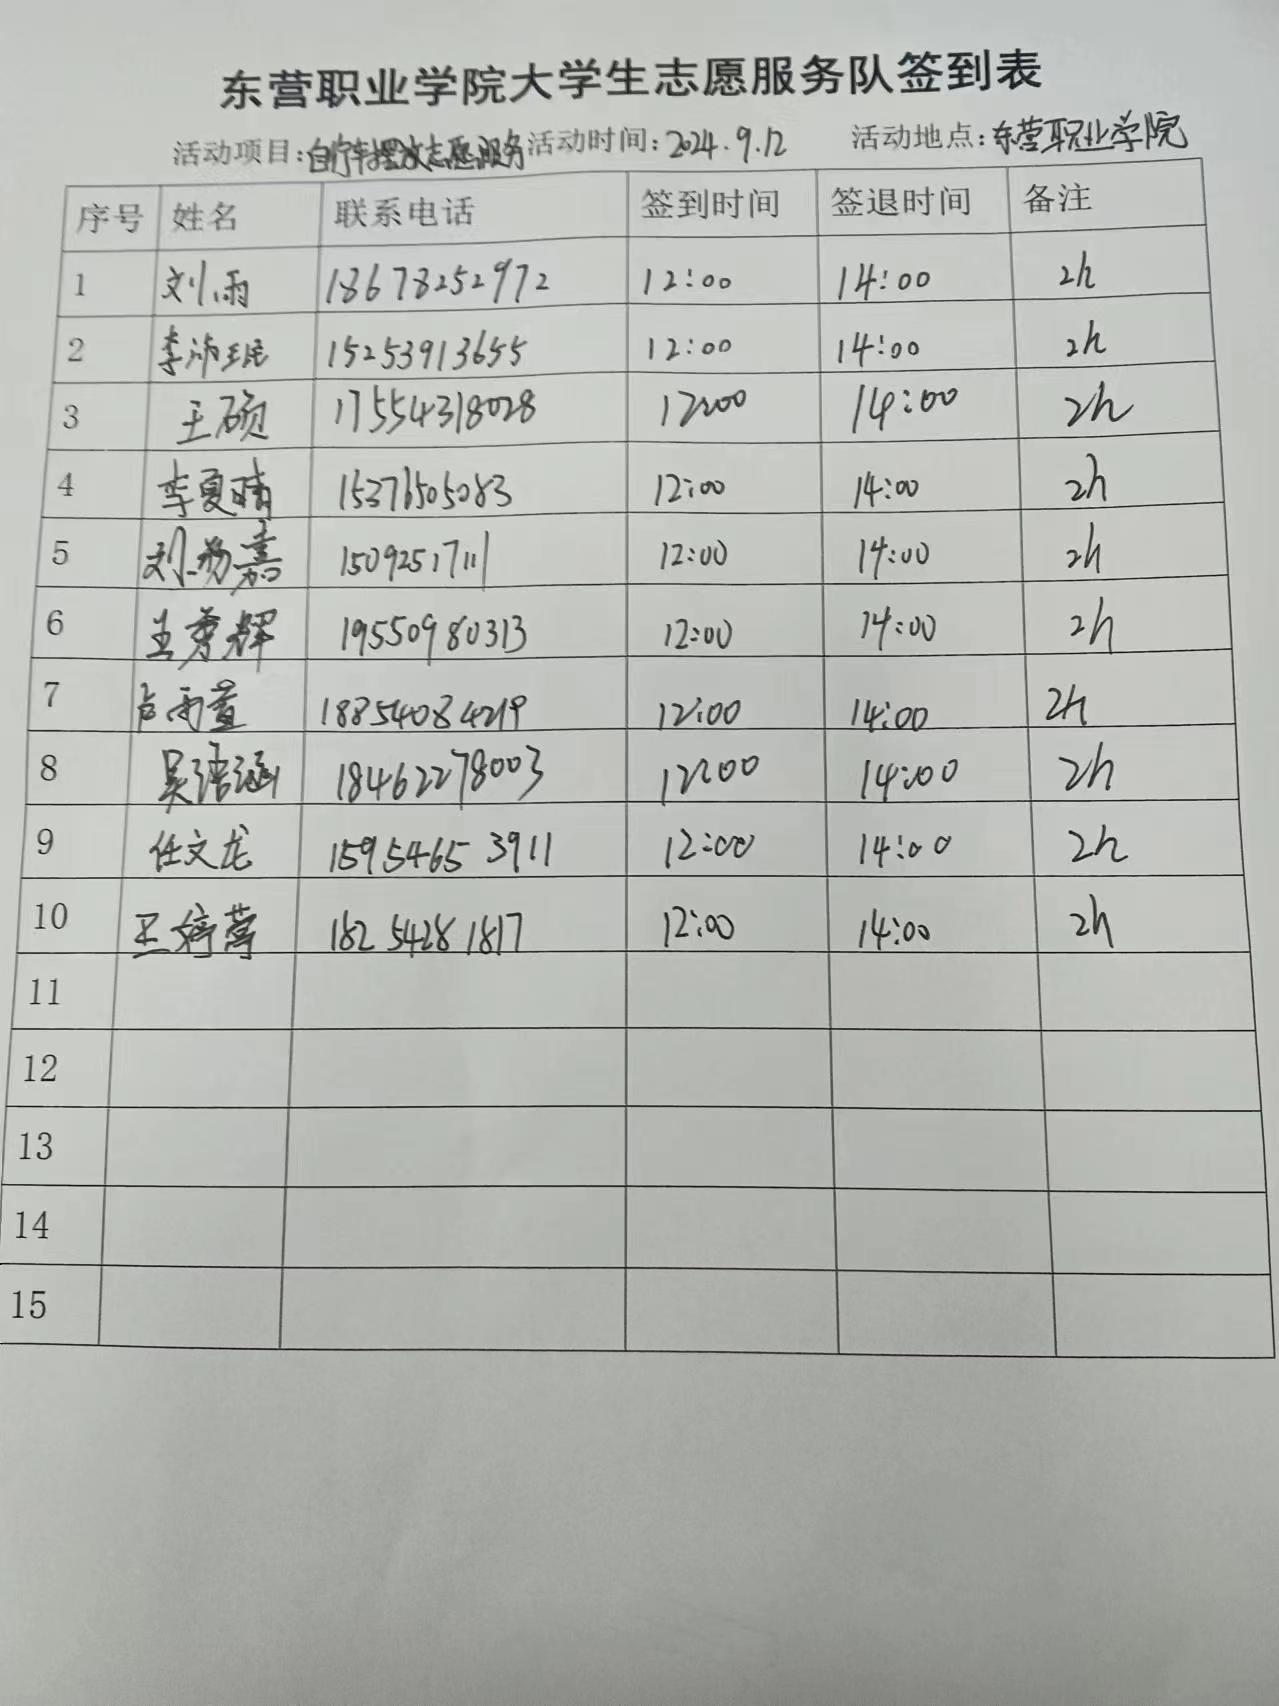 东营职业学院大学生志愿服务队签到表
活动项目:自行车摆放志愿服务 活动时间:2024.9.12 活动地点:东营职业学院
序号 姓名 联系电话 签到时间 签退时间 备注
1 刘雨 18678252972 12:00 14:00 2h
2 李沛珉 15253913655 12:00 14:00 2h
3 王硕 17554318028 12:00 14:00 2h
4 李夏晴 15376505083 12:00 14:00 2h
5 刘 嘉 15092517111 12:00 14:00 2h
6 王秀辉 19550980313 12:00 14:00 2h
7 卢雨萱 18854084219 12:00 14:00 2h
8 吴语涵 18462278003 12:00 14:00 2h
9 任文龙 15954653911 12:00 14:00 2h
10 王婷莺 182 5428 1817 12:00 14:00 2h
11
12
13
14
15